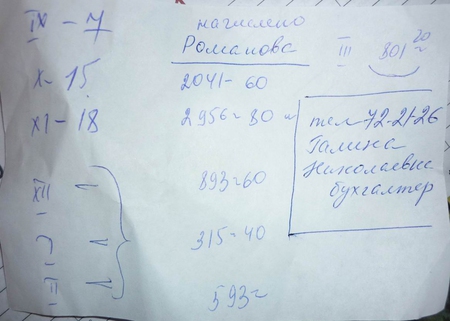 IX - 7
X - 15
XI - 18
XII
I
II
начислено
Романова
2041 - 60
2956 = 80
893 = 60
315 = 40
593 =
III 801 20
тел 72-21-26
Галина
Николаевна
бухгалтер